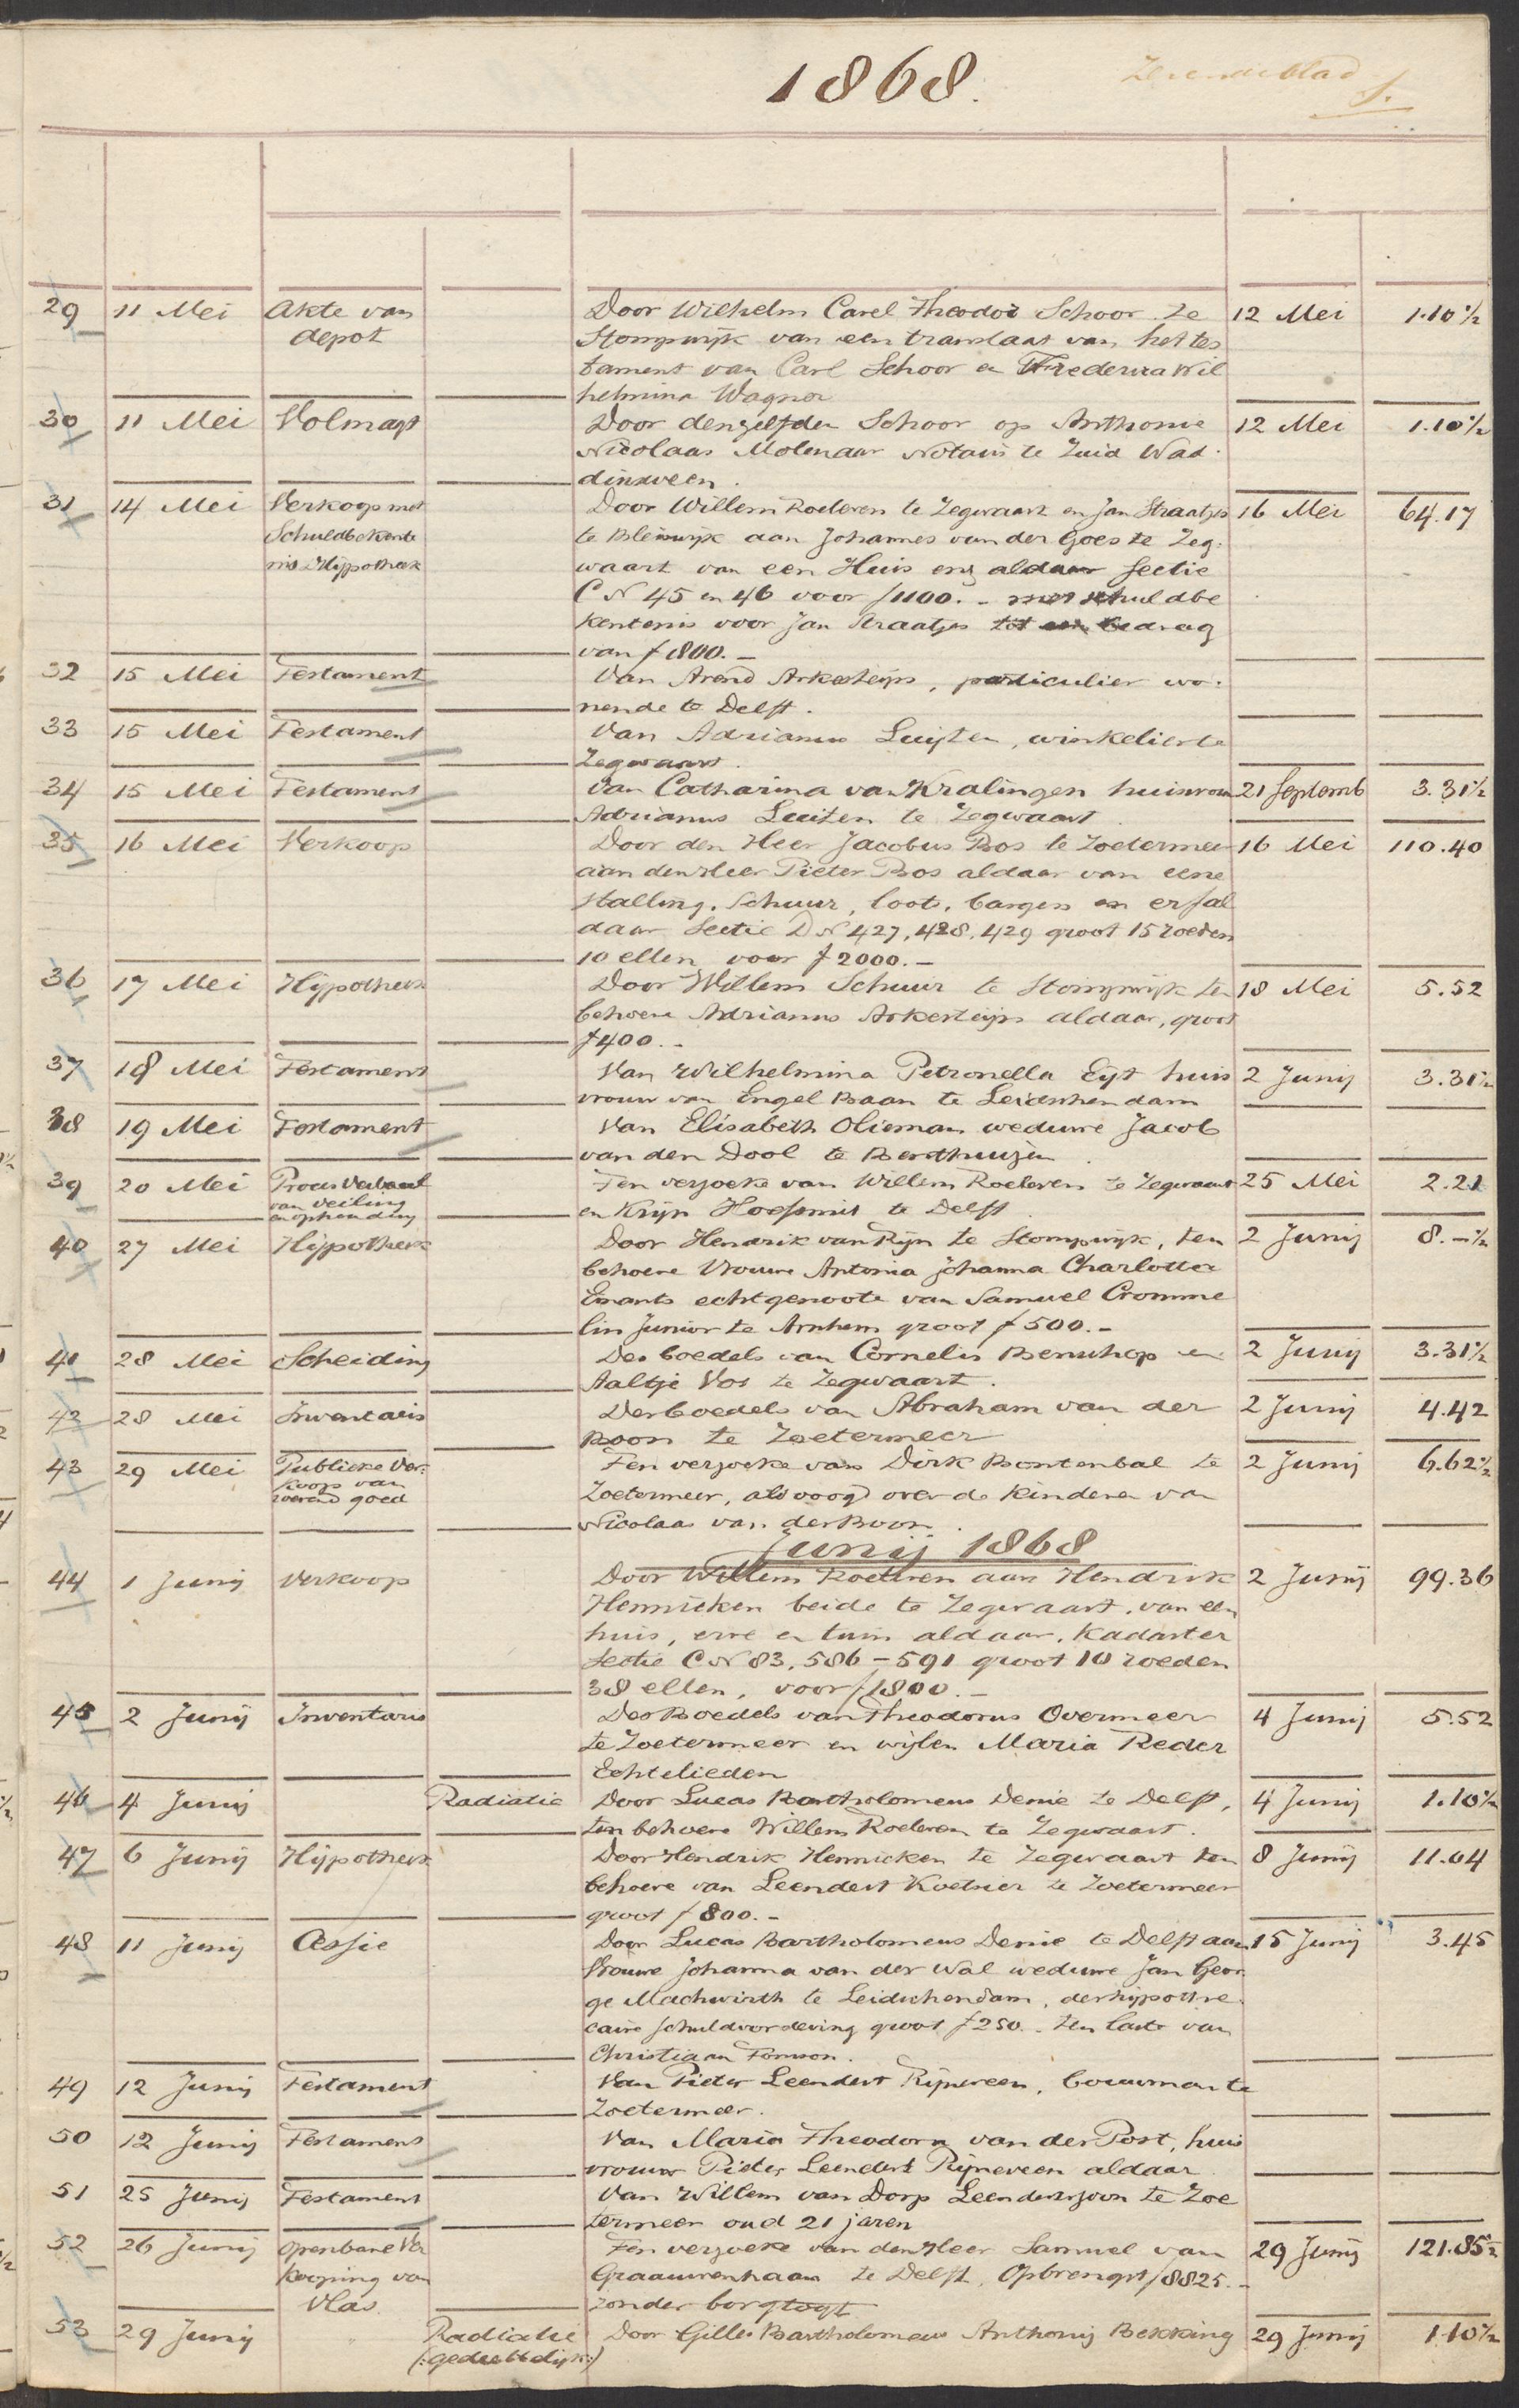 1868.
29 11 Mei Akte van Door Wilhelm Carel Theodor Schoor te 12 Mei 1.10½
depot Stompwijk van een translaat van het tes
tament van Carl Schoor en Frederica Wil
helmina Wagner
30 11 Mei Volmagt Door denzelfden Schoor op Anthonie 12 Mei 1.10½
Nicolaas Molenaar Notaris te Zuid Wad
dinxveen.
31 14 Mei Verkoop met Door Willem Roeleven te Zegwaart en Jan Straatjes 16 Mei 64.17
Schuldbekente te Bleiswijk aan Johannes van der Goes te Zeg.
nis & Hijpotheek waart van een Huis enz aldaar Sectie
C N 45 en 46 voor f 1100.- met schuldbe
kentenis voor Jan Straatjes tot een bedrag
van f 1800.-
32 15 Mei Testament Van Arend Arkesteijn, particulier wo.
nende te Delft.
33 15 Mei Testament Van Adrianus Luijten, winkelier te
Zegwaart.
34 15 Mei Testament Van Catharina van Kralingen huisvrouw 21 Septemb 3.31½
Adrianus Luiten te Zegwaart.
35 16 Mei Verkoop Door den Heer Jacobus Bos te Zoetermeer 16 Mei 110.40
aan den Heer Pieter Bos aldaar van eene
Stalling, Schuur, loots, bargen en erf al
daar Sectie D N 427, 428, 429 groot 15 roeden
10 ellen voor f 2000.-
36 17 Mei Hijpotheek Door Willem Schuur te Stompwijk ten 18 Mei 5.52
behoeve Adrianus Arkesteijn aldaar, groot
f 400.-
37 18 Mei Testament Van Wilhelmina Petronella Eijt huis 2 Junij 3.31½
vrouw van Engel Baan te Leidschendam
38 19 Mei Testament Van Elisabeth Olieman weduwe Jacob
van den Dool te Benthuizen
39 20 Mei Proces Verbaal Ten verzoeke van Willem Roeleven te Zegwaart 25 Mei 2.21
van veiling en Krijn Hoefsmit te Delft
en ophouding
40 27 Mei Hijpotheek Door Hendrik van Rijn te Stompwijk, ten 2 Junij 8.-½
behoeve Vrouwe Antonia Johanna Charlotta
Emants echtgenoote van Samuel Cromme
lin Junior te Arnhem groot f 500.-
41 28 Mei Scheiding Des boedels van Cornelis Benschop en 2 Junij 3.31½
Aaltje Vos te Zegwaart.
42 28 Mei Inventaris Des boedels van Abraham van der 2 Junij 4.42
Boon te Zoetermeer
43 29 Mei Publieke Ver: Ten verzoeke van Dirk Bontenbal te 2 Junij 6.62½
koop van Zoetermeer, als voogd over de kinderen van
roerend goed Nicolaas van der Boon.
Junij 1868
44 1 Junij Verkoop Door Willem Roeleven aan Hendrik 2 Junij 99.36
Hennicken beide te Zegwaart, van een
huis, erve en tuin aldaar, Kadaster
Sectie C N 83, 586 – 591 groot 10 roeden
38 ellen, voor f 1800.-
45 2 Junij Inventaris Des Boedels van Theodorus Overmeer 4 Junij 5.52
te Zoetermeer en wijlen Maria Reder
Echtelieden
46 4 Junij Radiatie Door Lucas Bartholomeus Denie te Delft, 4 Junij 1.10½
ten behoeve Willem Roeleven te Zegwaart.
47 6 Junij Hijpotheek Door Hendrik Hennicken te Zegwaart ten 8 Junij 11.04
behoeve van Leendert Koetsier te Zoetermeer
groot f 800.-
48 11 Junij Cessie Door Lucas Bartholomeus Denie te Delft aan 15 Junij 3.45
Vrouwe Johanna van der Wal weduwe Jan Geor
ge Machwirth te Leidschendam, der hijpothe
caire schuldvordering groot f 250.- ten laste van
Christiaan Tomson.
49 12 Junij Testament Van Pieter Leendert Rijneveen, bouwman te
Zoetermeer.
50 12 Junij Testament Van Maria Theodora van der Post, huis
vrouw Pieter Leendert Rijneveen aldaar
51 25 Junij Testament Van Willem van Dorp Leendertszoon te Zoe
termeer oud 21 jaren
52 26 Junij openbare Ver Ten verzoeke van den Heer Samuel van 29 Junij 121.85½
kooping van Graauwenhaan te Delft, Opbrengst f 8825.-
Vlas zonder borgtogt
53 29 Junij Radiatie Door Gilles Bartholomeus Anthonij Bekking 29 Junij 1.10½
(:gedeeltelijk:)